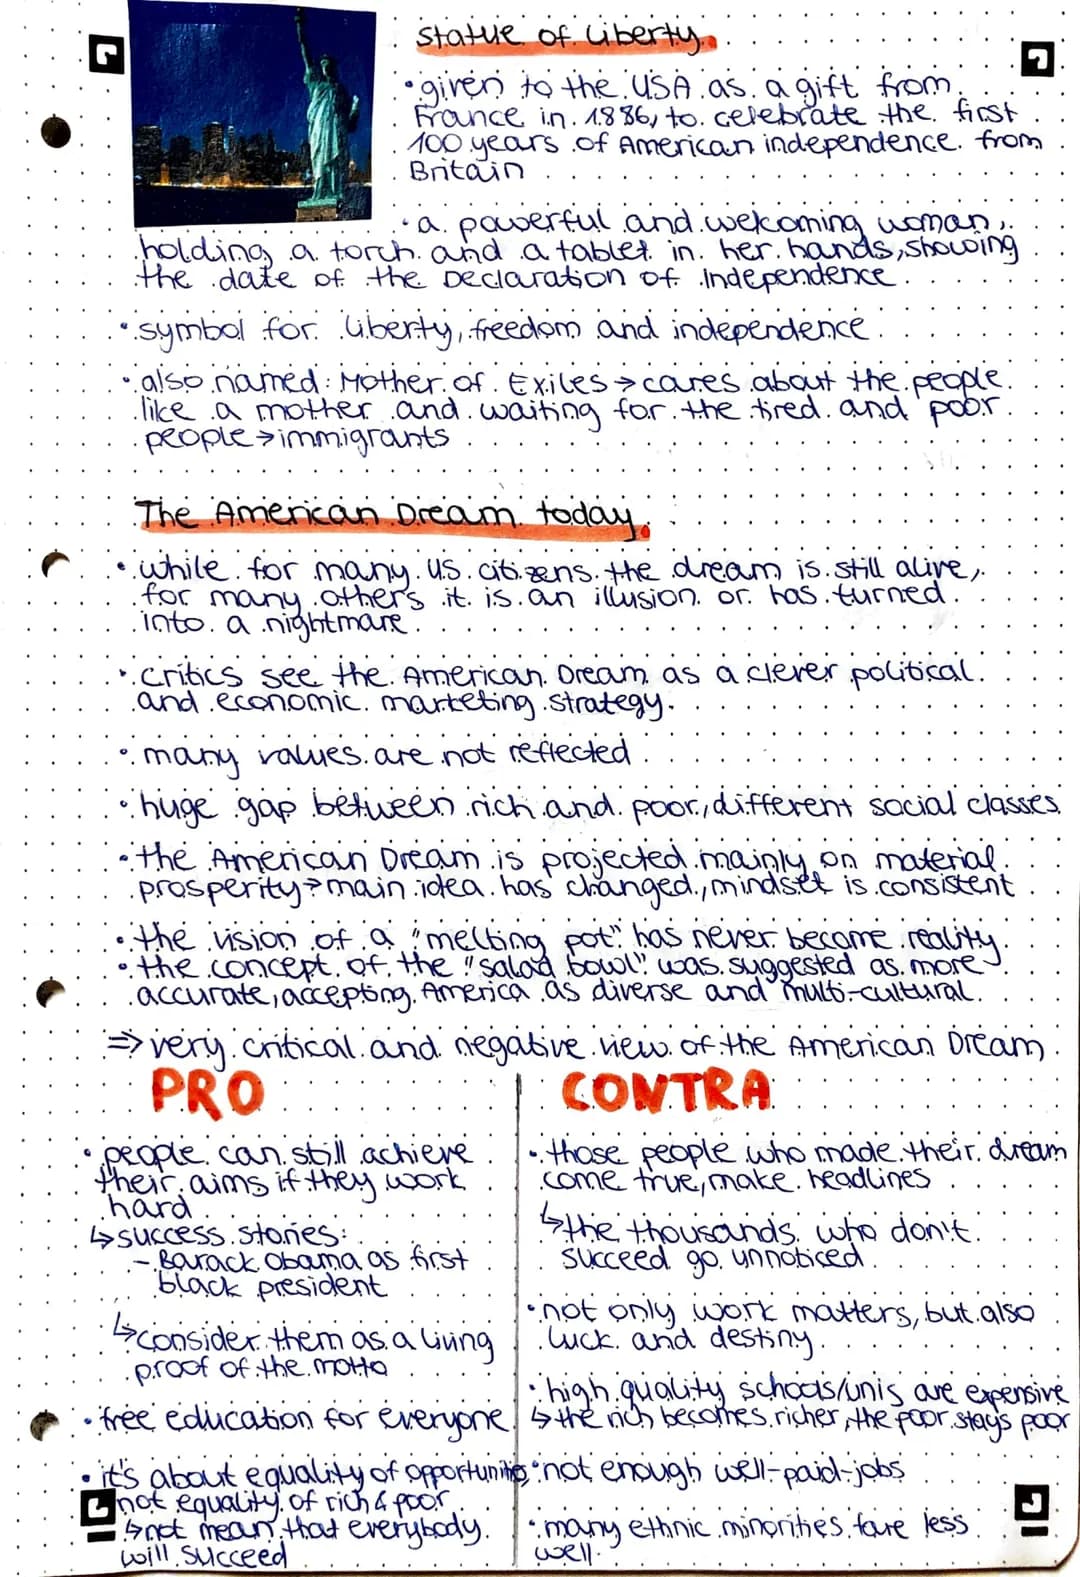 Statue of Liberty
• given to the USA as a gift from
France in 1886, to celebrate the first
100 years of American independence from
Britain
• a powerful and welcoming woman,
holding a torch and a tablet in her hands, showing
the date of the Declaration of Independence
• symbol for liberty, freedom and independence
• also named: Mother of Exiles → cares about the people
like a mother and waiting for the tired and poor
people → immigrants
The American Dream today
• while for many US citizens the dream is still alive,
for many others it is an illusion or has turned
into a nightmare
• critics see the American Dream as a clever political
and economic marketing strategy
• many values are not reflected
• huge gap between rich and poor, different social classes
• the American Dream is projected mainly on material
prosperity → main idea has changed, mindset is consistent
• the vision of a "melting pot" has never become reality
• the concept of the "salad bowl" was suggested as more
accurate, accepting America as diverse and multi-cultural
⇒ very critical and negative view of the American Dream
PRO
• people can still achieve
their aims if they work
hard
↳ success stories:
- Barack Obama as first
black president
↳ consider them as a living
proof of the motto
• free education for everyone
• it's about equality of opportunity,
not equality of rich & poor
↳ not mean that everybody
will succeed
CONTRA
• those people who made their dream
come true, make headlines
↳ the thousands who don't
succeed go unnoticed
• not only work matters, but also
luck and destiny
• high quality schools/unis are expensive
↳ the rich becomes richer, the poor stays poor
• not enough well-paid-jobs
• many ethnic minorities fare less
well